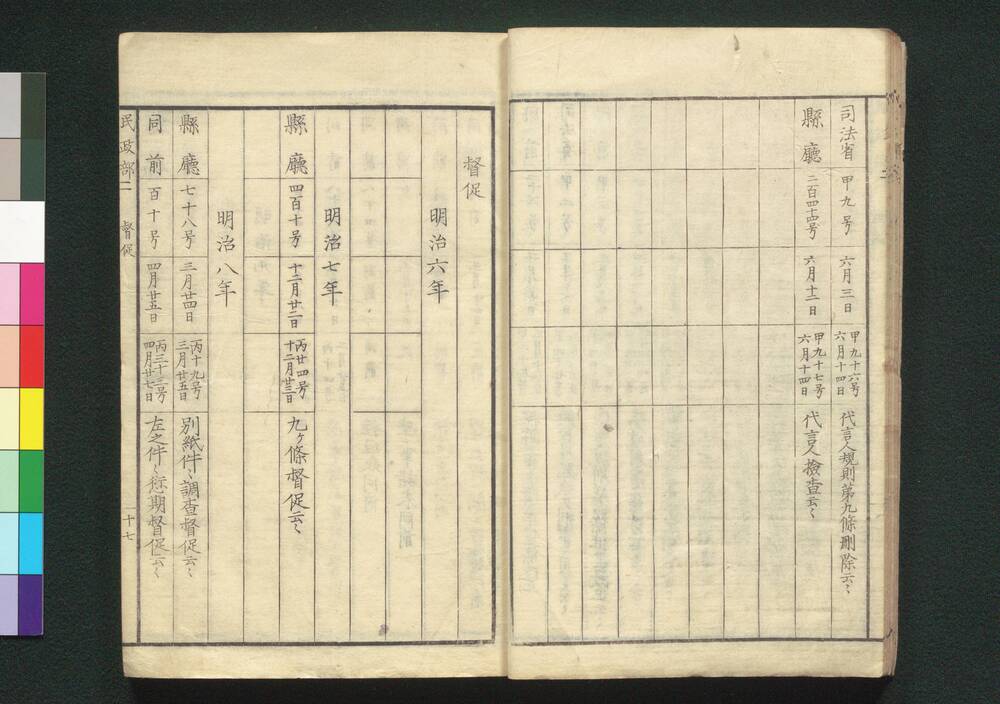 司法省 甲九号 六月三日 甲九十六号 六月十四日 代言人規則第九條刪除云々
縣廳 二百四十四号 六月十二日 甲九十七号 六月十四日 代言人檢査云々
督促
明治六年
明治七年
縣廳 四百十号 十二月廿二日 丙廿四号 十二月廿三日 九ヶ條督促云々
明治八年
縣廳 七十八号 三月廿四日 丙十九号 三月廿五日 別紙件々調査督促云々
同前 百十号 四月廿五日 丙三十三号 四月廿七日 左之件々愆期督促云々
民政部二 督促 十七